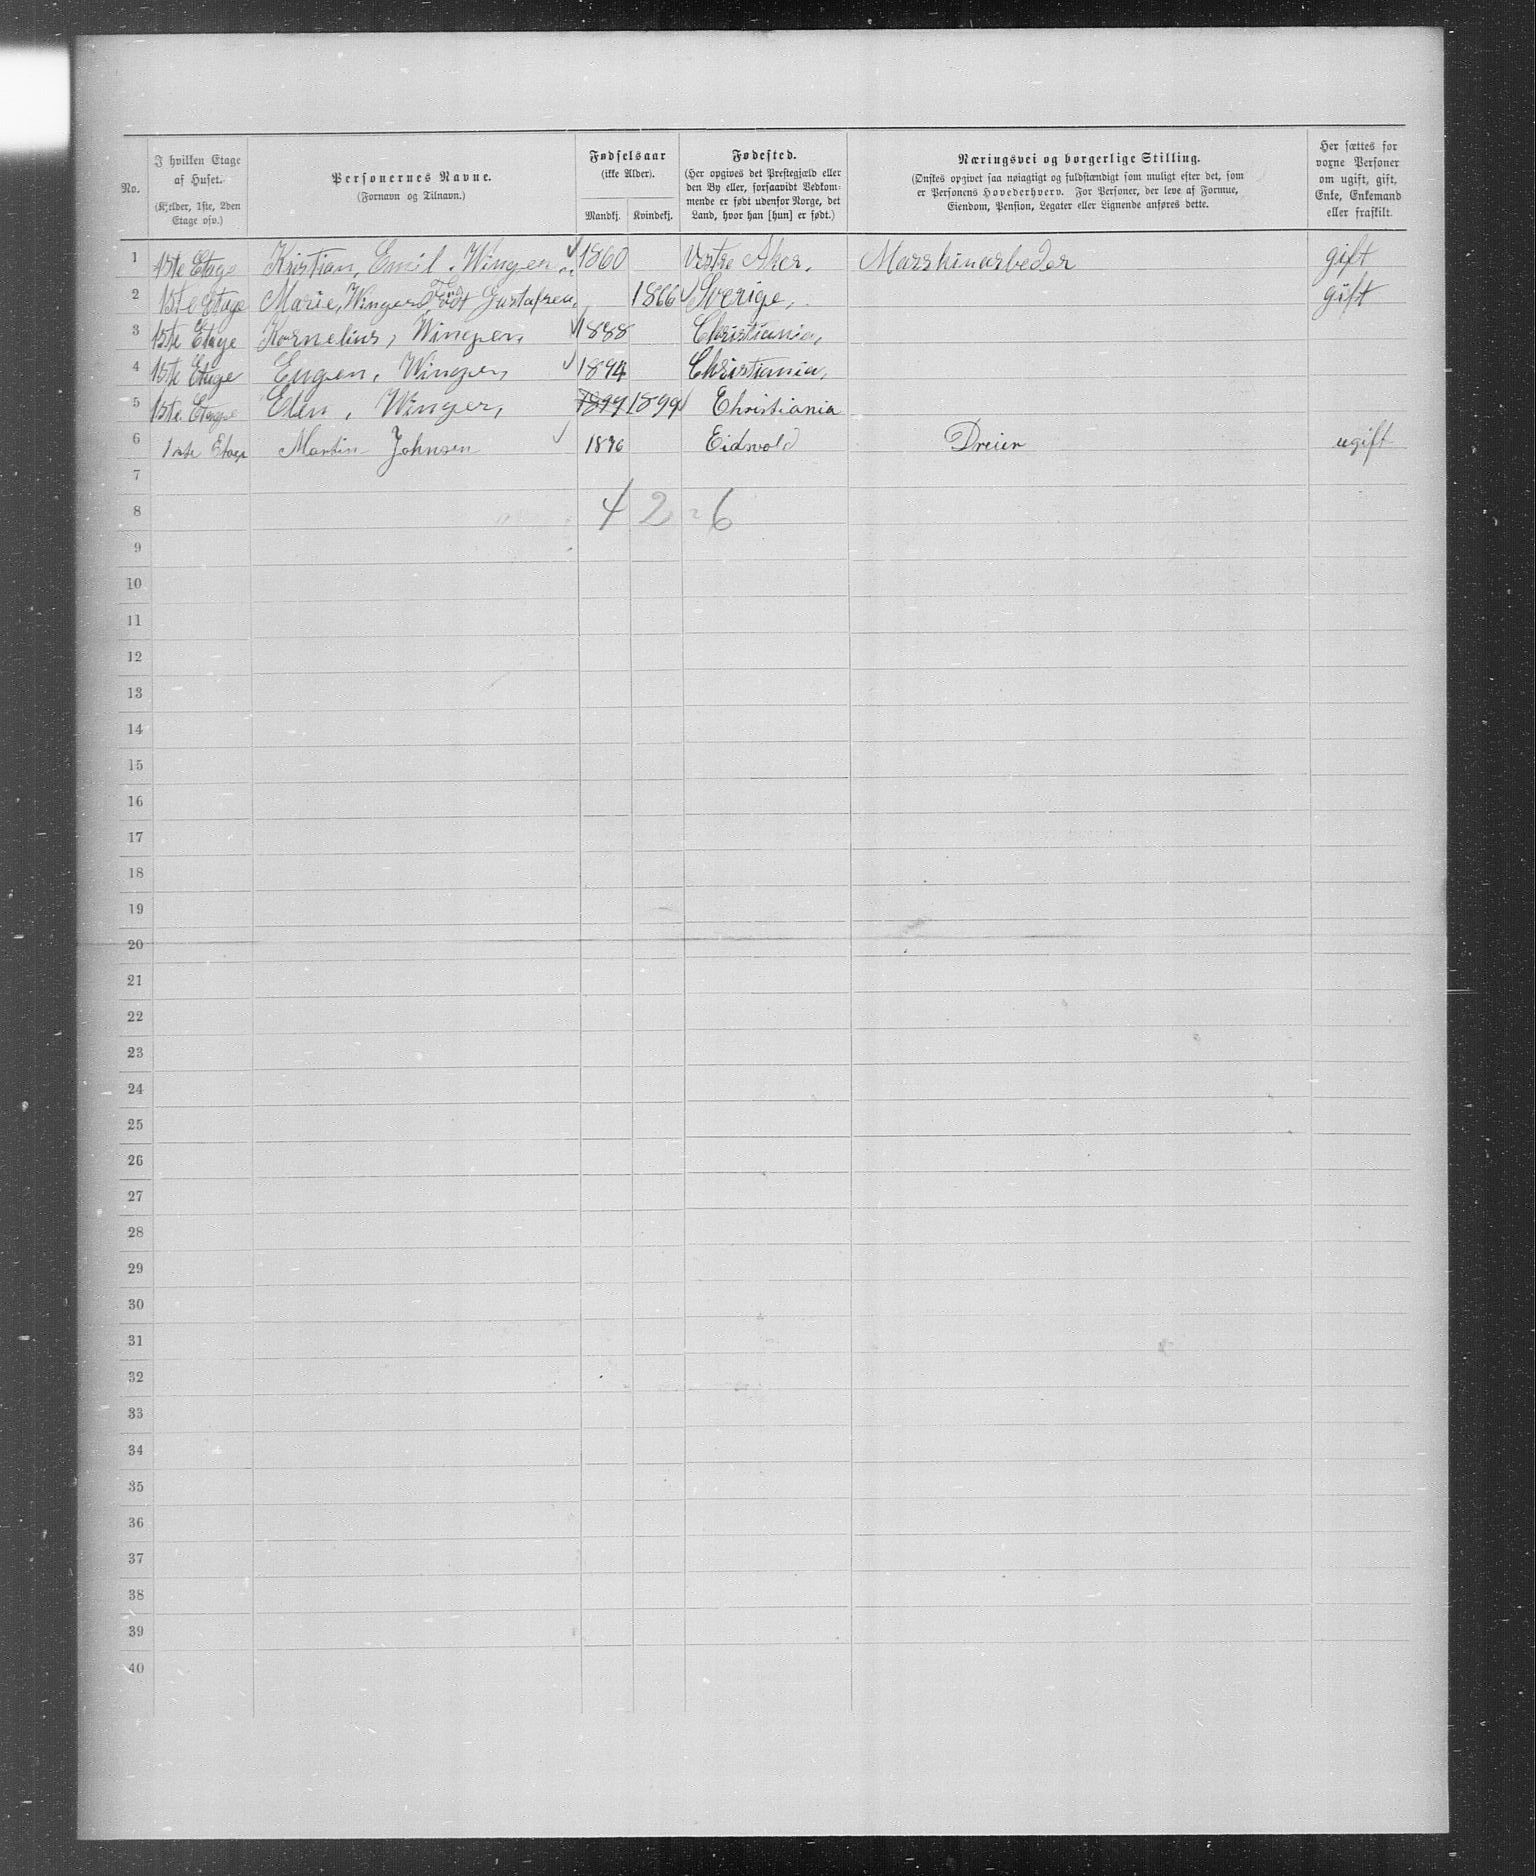 No.
I hvilken Etage af Huset. (Kjelder, 1ste, 2den Etage osv.)
Personernes Navne. (Fornavn og Tilnavn.)
Fødselsaar (ikke Alder). Mandkj. Kvindekj.
Fødested. (Her opgives det Prestegjæld eller den By eller, forsaavidt Vedkommende er født udenfor Norge, det Land, hvor han [hun] er født.)
Næringsvei og borgerlige Stilling. (Ønskes opgivet saa nøiagtigt og fuldstændigt som muligt efter det, som er Personens Hovederhverv. For Personer, der leve af Formue, Eiendom, Pension, Legater eller Lignende anføres dette.
Her sættes for voxne Personer om ugift, gift, Enke, Enkemand eller fraskilt.
1 1ste Etage Kristian, Emil. Winger. 1860 Vestre Aker, Marskinarbeder gift
2 1ste Etage Marie, Winger, Gustafsen, 1866 Sverige, gift
3 1ste Etage Kornelius, Winger, 1888 Christiania,
4 1ste Etage Eugen, Winger, 1894 Christiania,
5 1ste Etage Elen, Winger, 1899 1899 Christiania
6 1ste Etage Martin Johnsen 1876 Eidsvold Dreier ugift
7
8 4 2 - 6
9
10
11
12
13
14
15
16
17
18
19
20
21
22
23
24
25
26
27
28
29
30
31
32
33
34
35
36
37
38
39
40